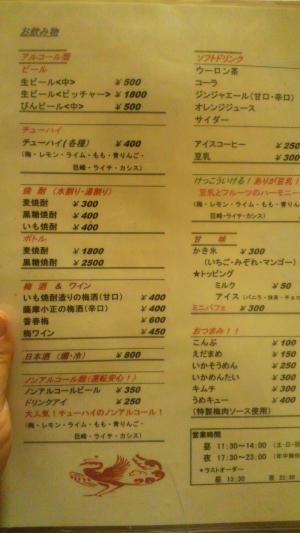 お飲み物
アルコール類
ビール
生ビール<中> ¥500
生ビール<ピッチャー> ¥1800
びんビール<中> ¥500
チューハイ
チューハイ(各種) ¥400
(梅・レモン・ライム・もも・青りんご・
巨峰・ライチ・カシス)
焼 酎 (水割り・湯割り)
麦焼酎 ¥300
黒糖焼酎 ¥400
いも焼酎 ¥400
ボトル
麦焼酎 ¥1800
黒糖焼酎 ¥2500
梅 酒 & ワイン
いも焼酎造りの梅酒(甘口) ¥400
薩摩小正の梅酒(辛口) ¥400
香春梅 ¥600
梅ワイン ¥450
日本酒 (燗・冷) ¥800
ノンアルコール類(運転安心!)
ノンアルコールビール ¥350
ドリンクアイ ¥250
大人気!チューハイのノンアルコール!
(梅・レモン・ライム・もも・青りんご・
巨峰・ライチ・カシス)
ソフトドリンク
ウーロン茶
コーラ
ジンジャエール(甘口・辛口)
オレンジジュース
サイダー
アイスコーヒー ¥250
豆乳 ¥300
けっこういける!ありが豆乳!
豆乳とフルーツのハーモニー
巨峰・ライチ・カシス)
甘 味
かき氷 ¥300
(いちご・みぞれ・マンゴー)
★トッピング
ミルク ¥50
アイス (バニラ・抹茶・チョコ
ミニパフェ ¥300
おつまみ!!
こんぶ ¥100
えだまめ ¥150
いかそうめん ¥250
いかめんたい ¥300
キムチ ¥300
うめキュー ¥400
(特製梅肉ソース使用)
営業時間
昼 11:30~14:00 (土・日・祝
夜 17:30~23:00 (年中無休
*ラストオーダー
昼 13:30 夜 22:30